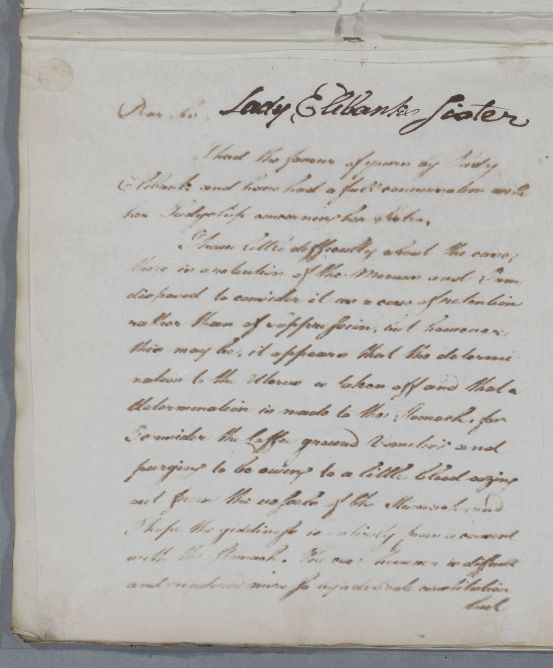 Dear Sir. Lady Elibanks Sister
I had the favour of yours by Lady
Elibank and have had a full conversation with
her Ladyship concerning her Sister.
I have little difficulty about the case,
there is a retention of the Menses and I am
disposed to consider it as a case of retention
rather than of suppression, but however
this may be, it appears that the determi
nation to the Uterus is taken off and that a
determination is made to the Stomach, for
I consider the Coffee ground Vomitings and
purging to be owing to a little blood oozing
out from the vessels of the Stomach, and
I hope the giddiness is entirely from a consent
with the Stomach. The case however is difficult
and rendered more so by a delicate constitution
but